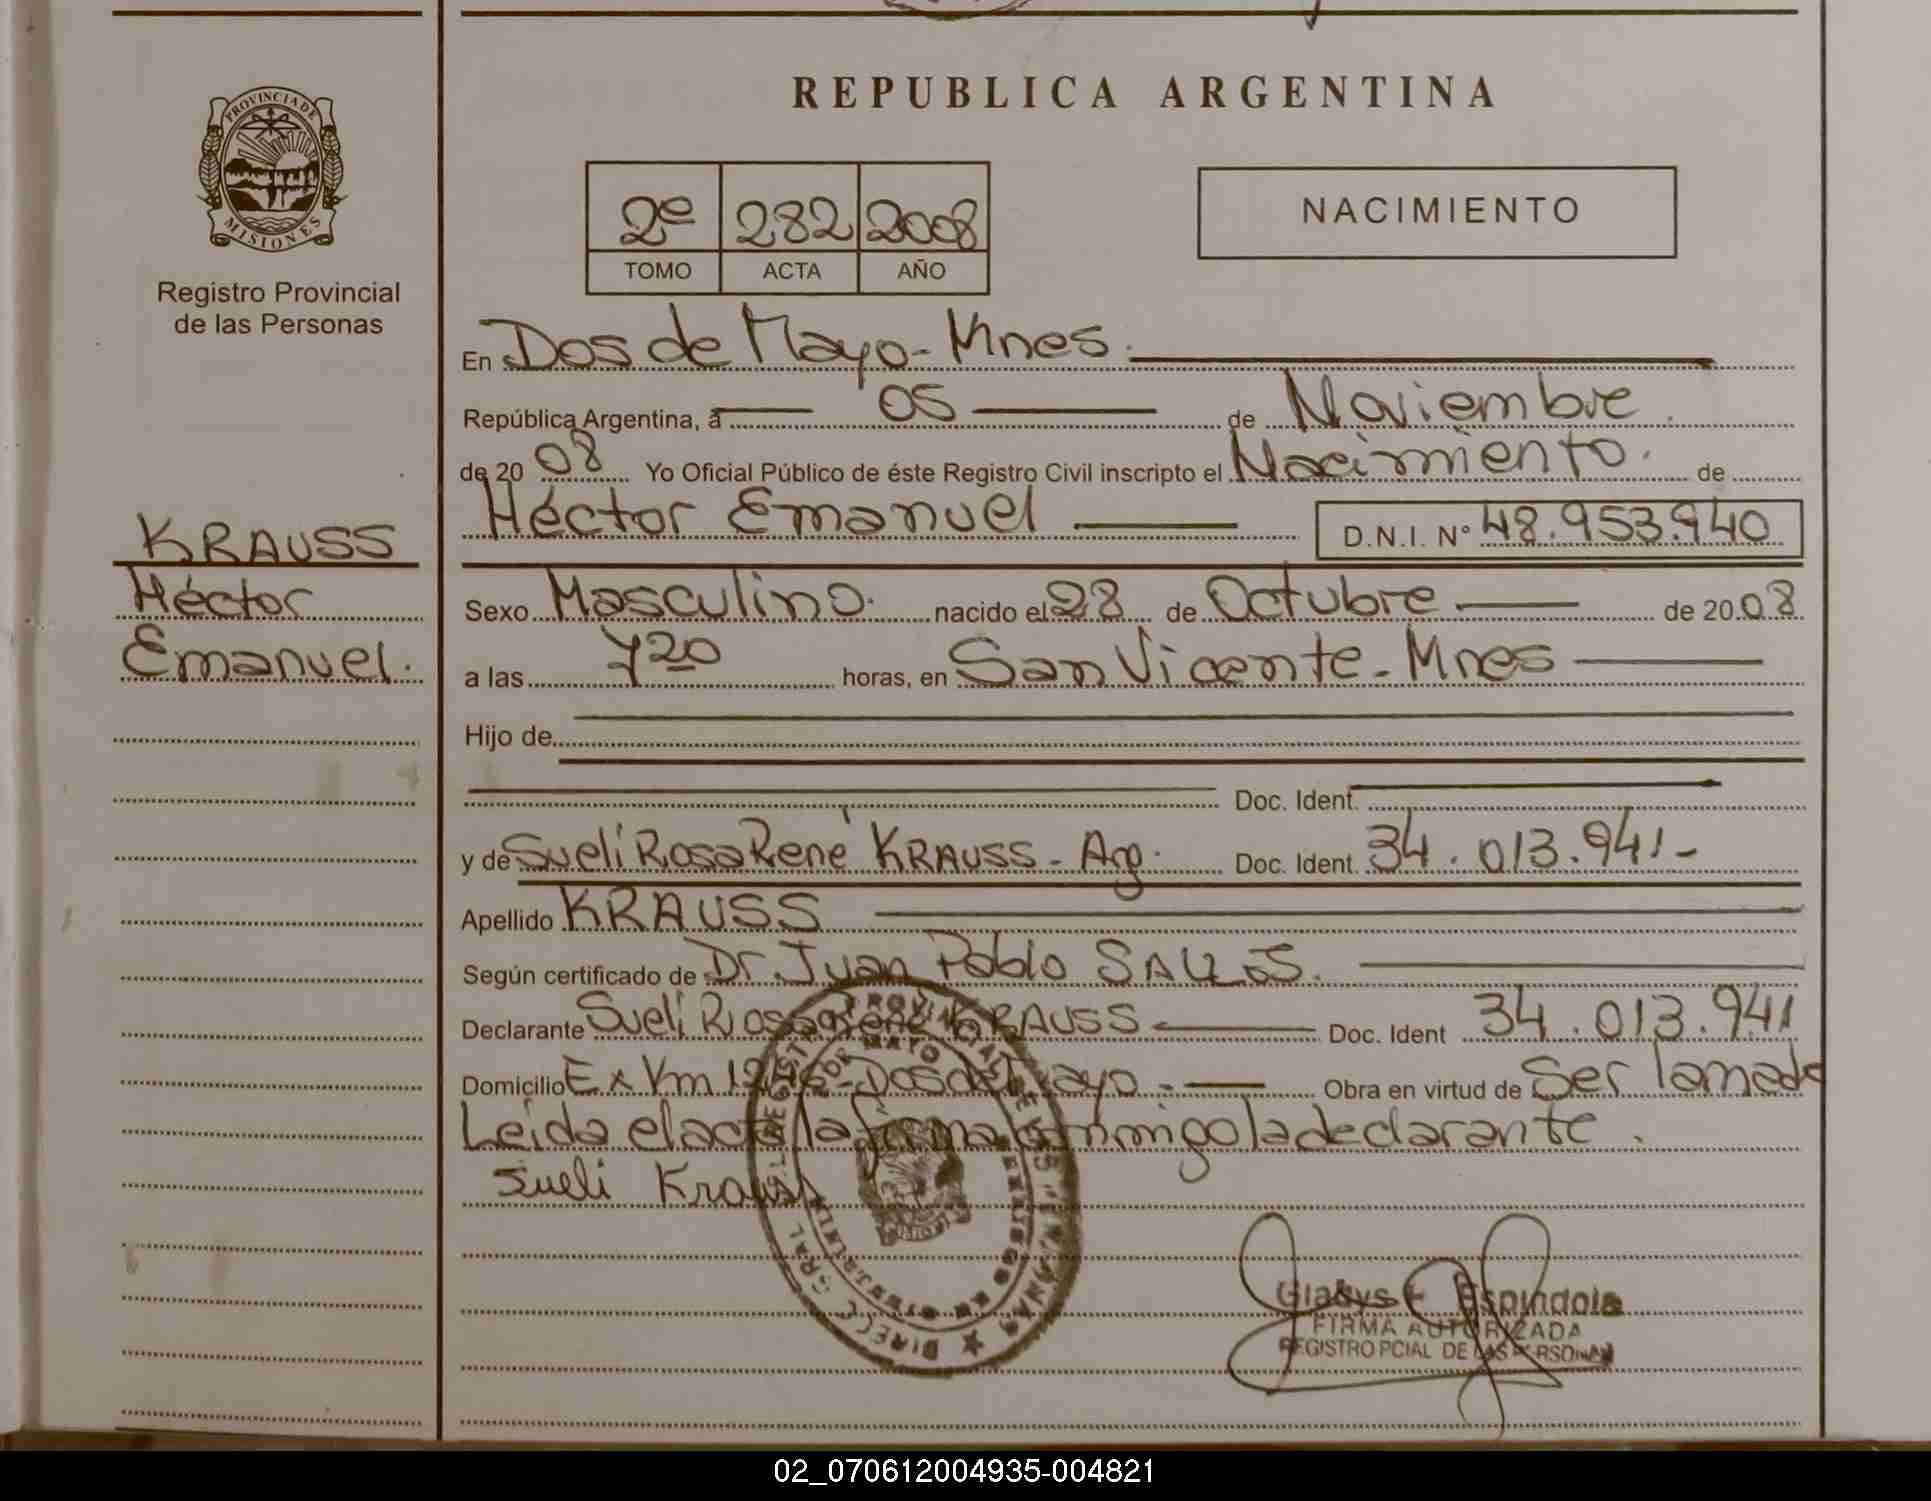 REPUBLICA ARGENTINA
PROVINCIA DE
MISIONES
Registro Provincial
de las Personas
2º 282 2008
TOMO ACTA AÑO
NACIMIENTO
En Dos de Mayo - Mnes.
República Argentina, a 05 de Noviembre
de 2008 Yo Oficial Público de éste Registro Civil inscripto el Nacimiento. de
Héctor Emanuel D.N.I. Nº 48.953.940
KRAUSS
Héctor
Emanuel.
Sexo Masculino. nacido el 28 de Octubre de 2008
a las 7 20 horas, en San Vicente - Mnes
Hijo de
Doc. Ident.
y de Sueli Rosa René KRAUSS - Arg. Doc. Ident. 34.013.941-
Apellido KRAUSS
Según certificado de Dr. Juan Pablo
Declarante Sueli Rosa René KRAUSS Doc. Ident 34.013.941
Domicilio Ex Km - Dos de Mayo - Obra en virtud de Ser lamado
Leída el acta la firma conmigo la declarante.
Sueli Krauss
Gladys Espindola
FIRMA AUTORIZADA
REGISTRO PCIAL DE LAS PERSONAS
02_070612004935-004821